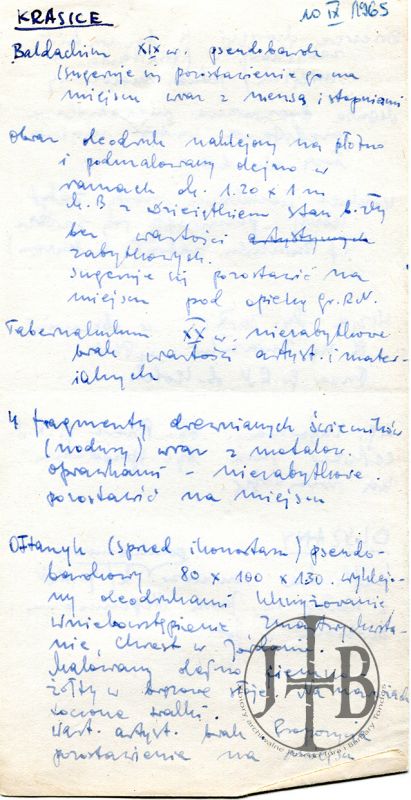 KRASICE 10 IX 1965
Baldachim XIX w. pseudobarok
(sugeruje się pozostawienie go na
miejscu wraz z mensą i stopniami
obraz oleodruk naklejony na płótno
i podmalowany olejno w
ramach ok. 1.20 x 1 m
M.B z Dzieciątkiem stan b. zły
bez wartości artystycznych
zabytkowych.
sugeruje się pozostawić na
miejscu pod opieką gr. R.N.
Tabernakulum XX w. niezabytkowe
brak wartości artyst. i mater-
ialnych
4 fragmenty drewnianych świeczników
(nodusy) wraz z metalow.
oprawkami - niezabytkowe.
pozostawić na miejscu
Ołtarzyk (sprzed ikonostasu) pseudo-
barokowy 80 x 100 x 130. wykleje-
ny oleodrukami Ukrzyżowanie
Wniebowstąpienie, Zmartwychwsta-
nie, Chrzest w Jordanie.
Malowany olejno ciemno
żółty w brązowe słoje. Na narożach
toczone wałki.
Wart. artyst. brak
pozostawienia na miejscu
JTB